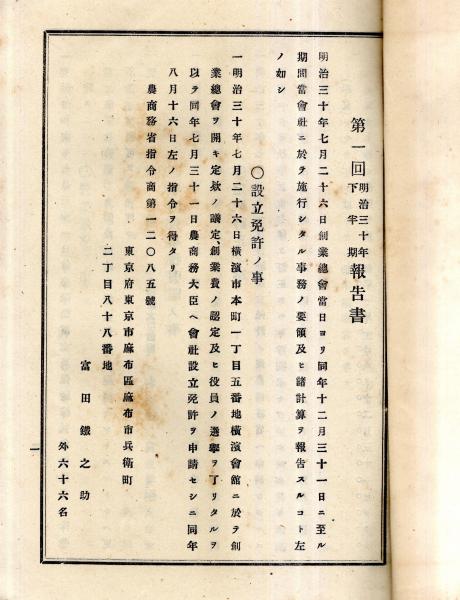 第一回明治三十年下半期報告書
明治三十年七月二十六日創業總會當日ヨリ同年十二月三十一日ニ至ル
期間當會社ニ於テ施行シタル事務ノ要領及ヒ諸計算ヲ報告スルコト左
ノ如シ
〇設立免許ノ事
一明治三十年七月二十六日橫濱市本町一丁目五番地橫濱會館ニ於テ創
業總會ヲ開キ定欵ノ議定、創業費ノ認定及ヒ役員ノ選擧ヲ了リタルヲ
以テ同年七月三十一日農商務大臣ヘ會社設立免許ヲ申請セシニ同年
八月十六日左ノ指令ヲ得タリ
農商務省指令商第一二〇八五號
東京府東京市麻布區麻布市兵衞町
二丁目八十八番地
富田鐵之助
外六十六名
一